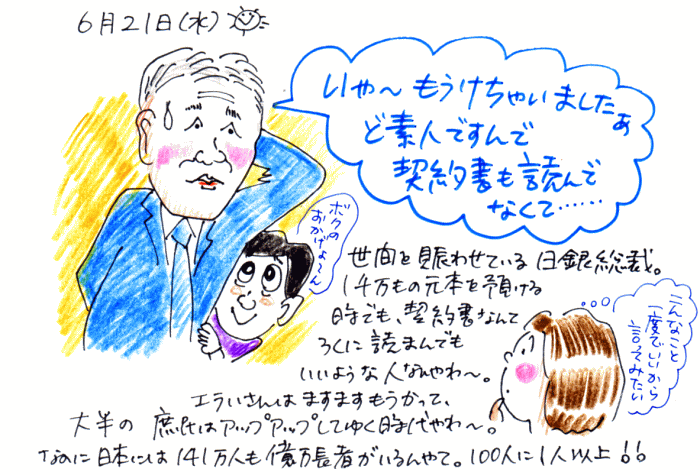 6月21日(水)
いや〜 もうけちゃいましたぁ
ど素人ですんで
契約書も読んで
なくて……
ボクの
おかげよ〜ん
世間を賑わせている日銀総裁。
1千万もの元本を預ける
時でも、契約書なんて
ろくに読まんでも
いいような人なんやわ〜。
こんなこと
一度でいいから
言ってみたい
エライさんはますますもうかって、
大半の庶民はアップアップしてゆく時代やわ〜。
なのに日本には141万人も億万長者がいるんやて。100人に1人以上!!